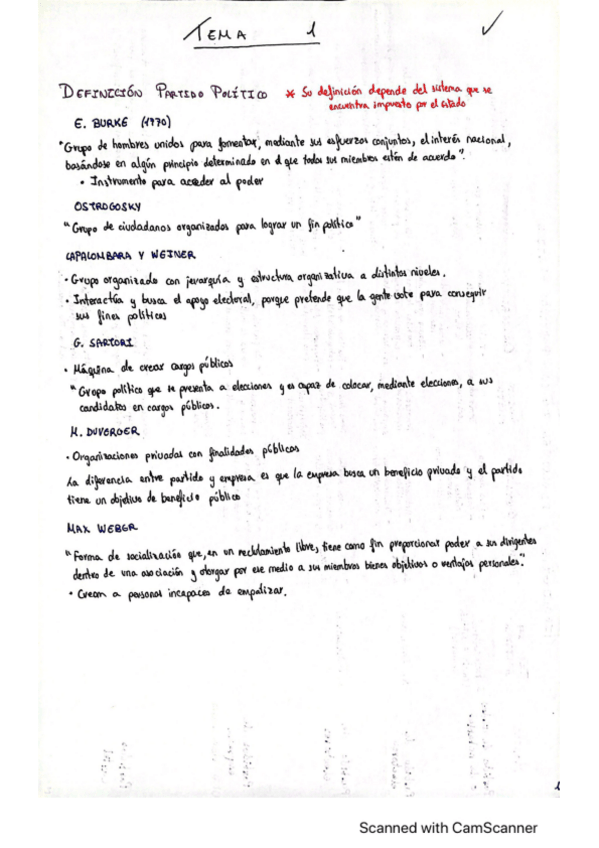 TEMA 1
DEFINICIÓN PARTIDO POLÍTICO * Su definición depende del sistema que se
encuentra impuesto por el Estado
E. BURKE (1770)
"Grupo de hombres unidos para fomentar, mediante sus esfuerzos conjuntos, el interés nacional,
basándose en algún principio determinado en el que todos sus miembros estén de acuerdo".
• Instrumento para acceder al poder
OSTROGOSKY
"Grupo de ciudadanos organizados para lograr un fin político"
LAPALOMBARA Y WEINER
• Grupo organizado con jerarquía y estructura organizativa a distintos niveles.
• Interactúa y busca el apoyo electoral, porque pretende que la gente vote para conseguir
sus fines políticos
G. SARTORI
• Máquina de crear cargos públicos
"Grupo político que se presenta a elecciones y es capaz de colocar, mediante elecciones, a sus
candidatos en cargos públicos.
M. DUVERGER
• Organizaciones privadas con finalidades públicas
La diferencia entre partido y empresa es que la empresa busca un beneficio privado y el partido
tiene un objetivo de beneficio público
MAX WEBER
"Forma de socialización que, en un reclutamiento libre, tiene como fin proporcionar poder a sus dirigentes
dentro de una asociación y otorgar por ese medio a sus miembros bienes objetivos o ventajas personales."
• Crean a personas incapaces de empatizar.
1
Scanned with CamScanner